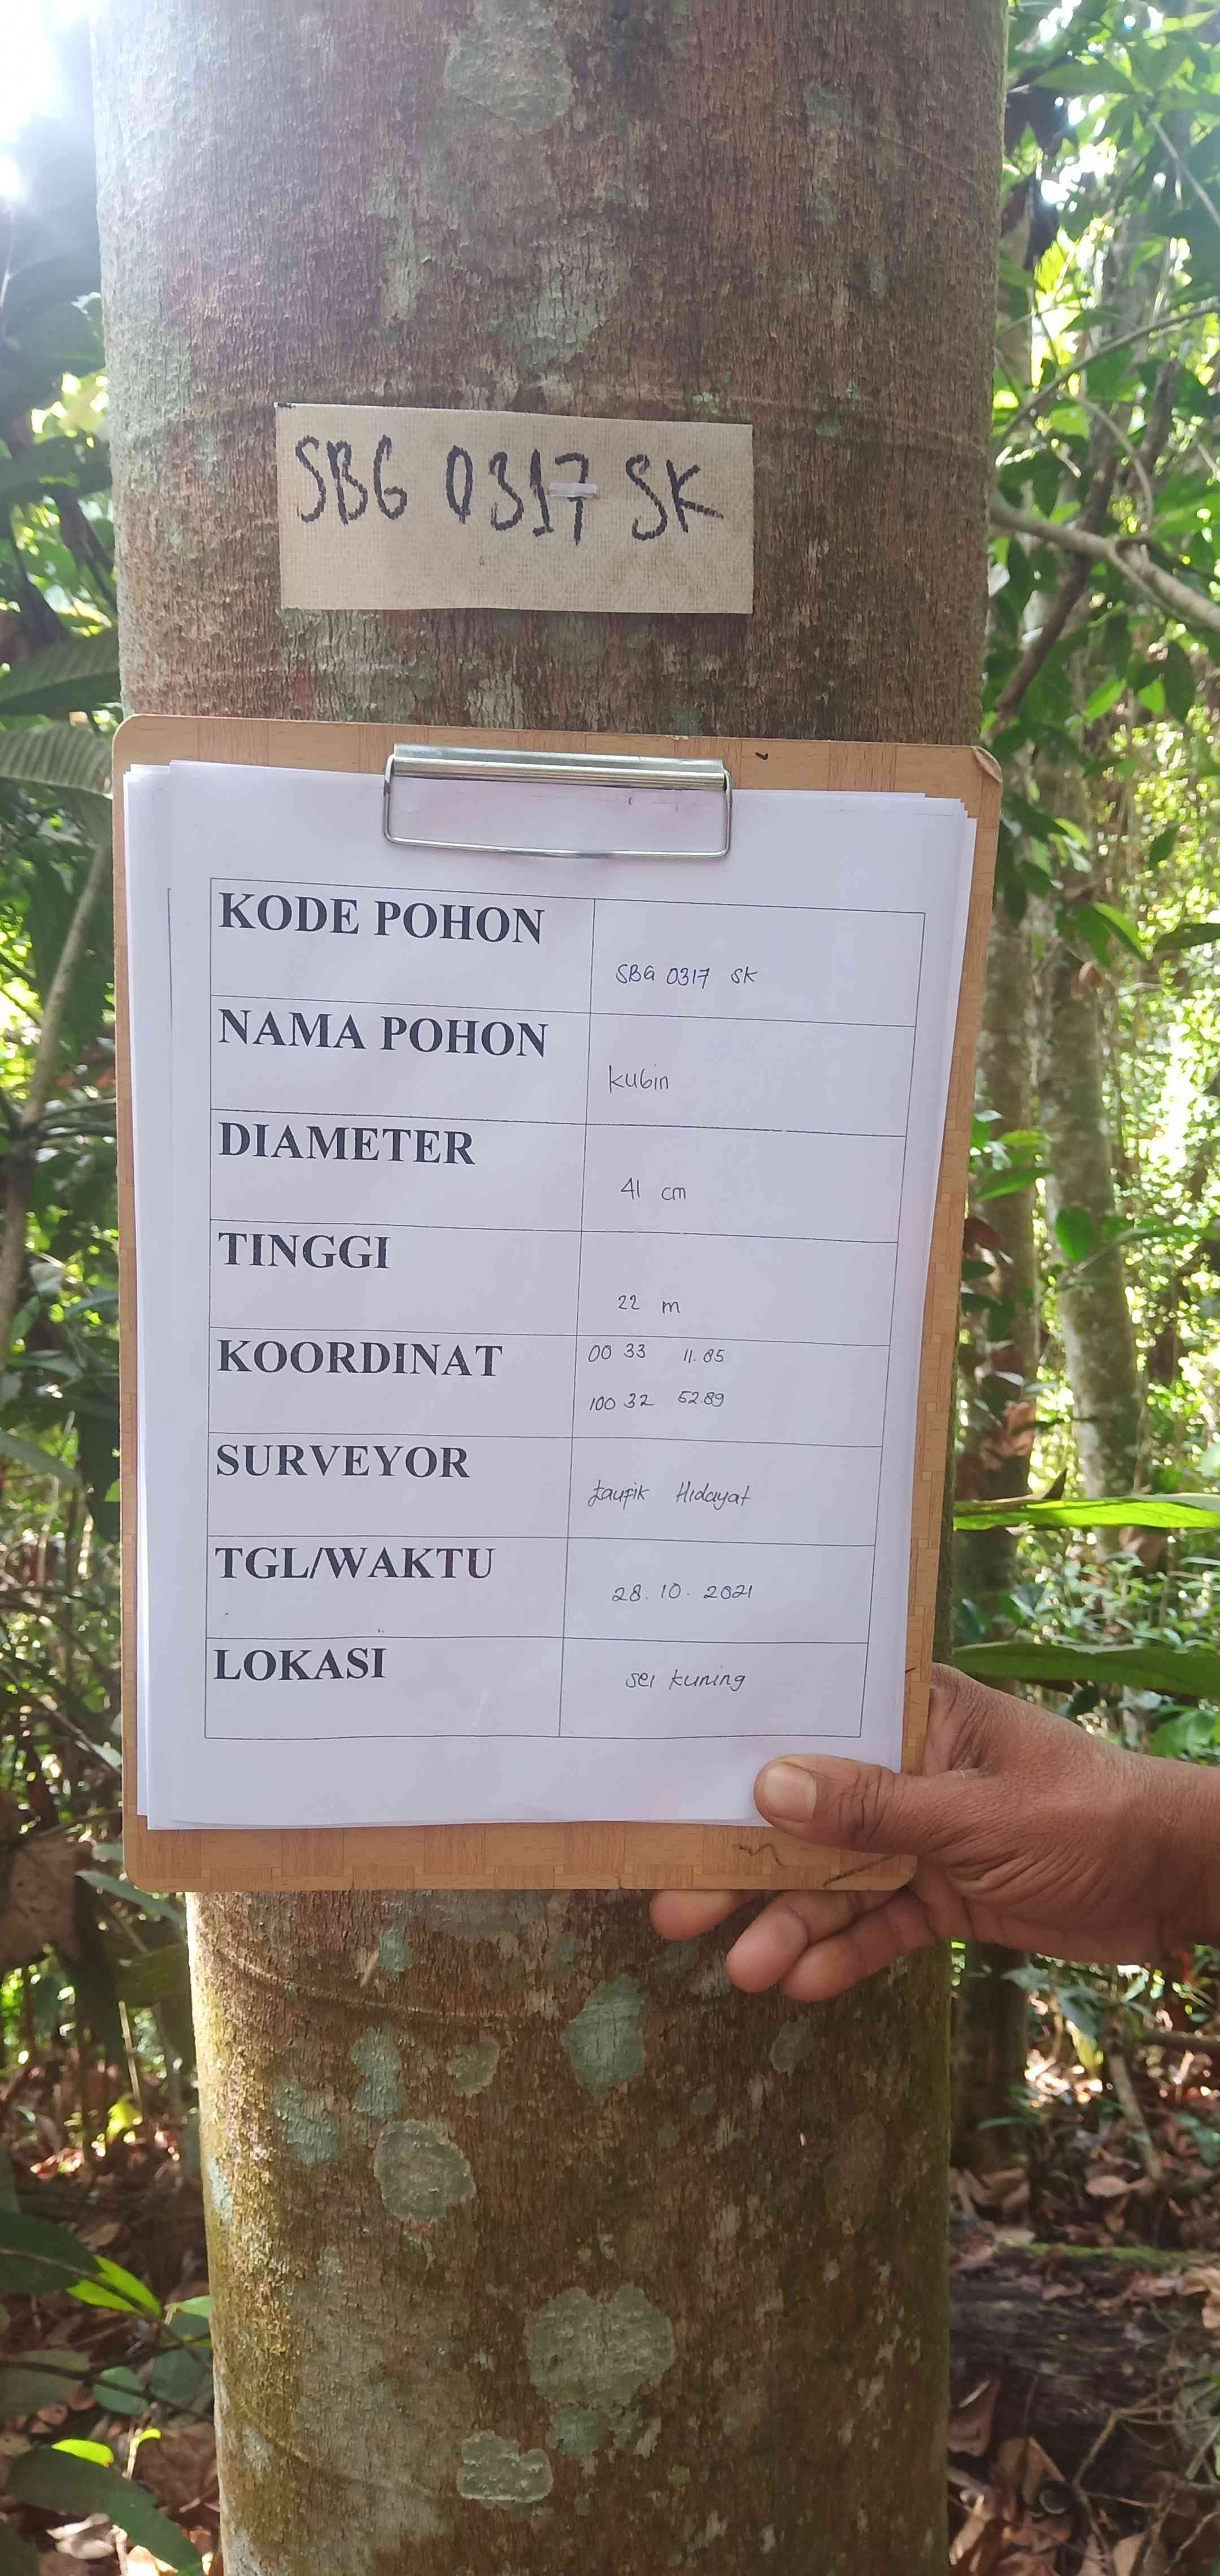 SBG 0317 SK
KODE POHON
SBG 0317 SK
NAMA POHON
kubin
DIAMETER
41 cm
TINGGI
22 m
KOORDINAT
00 33 11.85
100 32 52.89
SURVEYOR
taufik Hidayat
TGL/WAKTU
28.10.2021
LOKASI
sei kuning